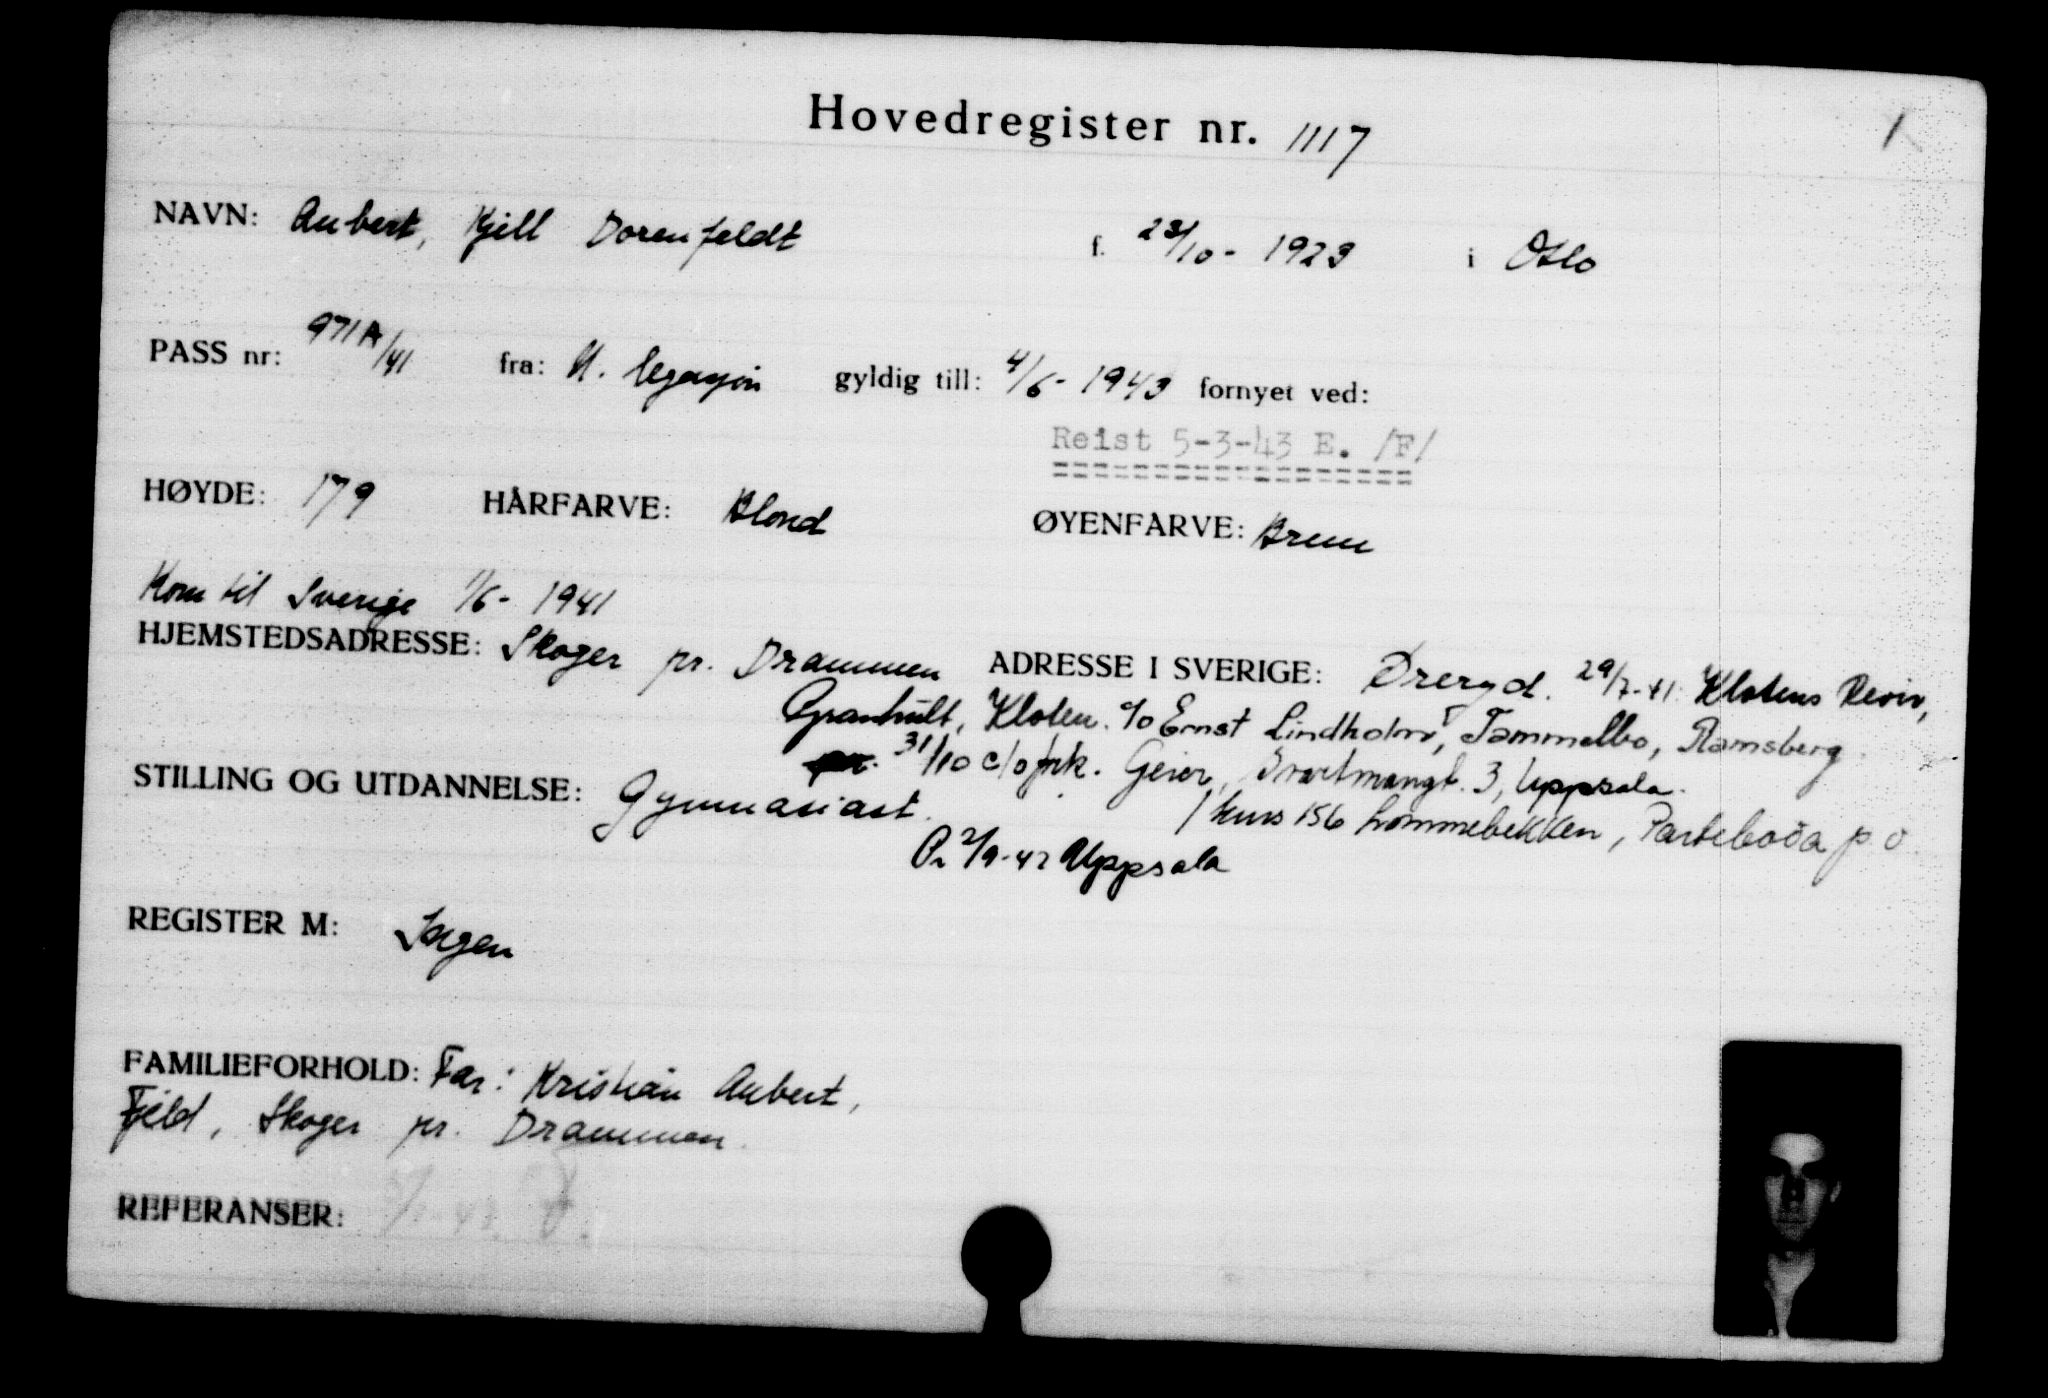 Hovedregister nr. 1117
1
NAVN: Aubert, Kjell Dorenfeldt f. 23/10- 1923 i Oslo
PASS nr: 971A/41 fra: N. legasjon gyldig till: 4/6- 1943 fornyet ved:
Reist 5-3-43 E. /F/
HØYDE: 179 HÅRFARVE: Blond ØYENFARVE: Brune
Kom til Sverige 1/6- 1941
HJEMSTEDSADRESSE: Skoger pr. Drammen ADRESSE I SVERIGE: Øreryd. 29/7-41 Klotens Revir,
Granhult, Kloten. c/o Ernst Lindholm, Tammelbo, Ramsberg
31/10 c/o frk. Geier, 3, Uppsala.
STILLING OG UTDANNELSE: Gymnasiast. / kurs 156 Lommebekken, Parteboda p.o.
2/9-42 Uppsala
REGISTER M: Ingen
FAMILIEFORHOLD: Far: Kristian Aubert,
Fjeld, Skoger pr. Drammen
REFERANSER: